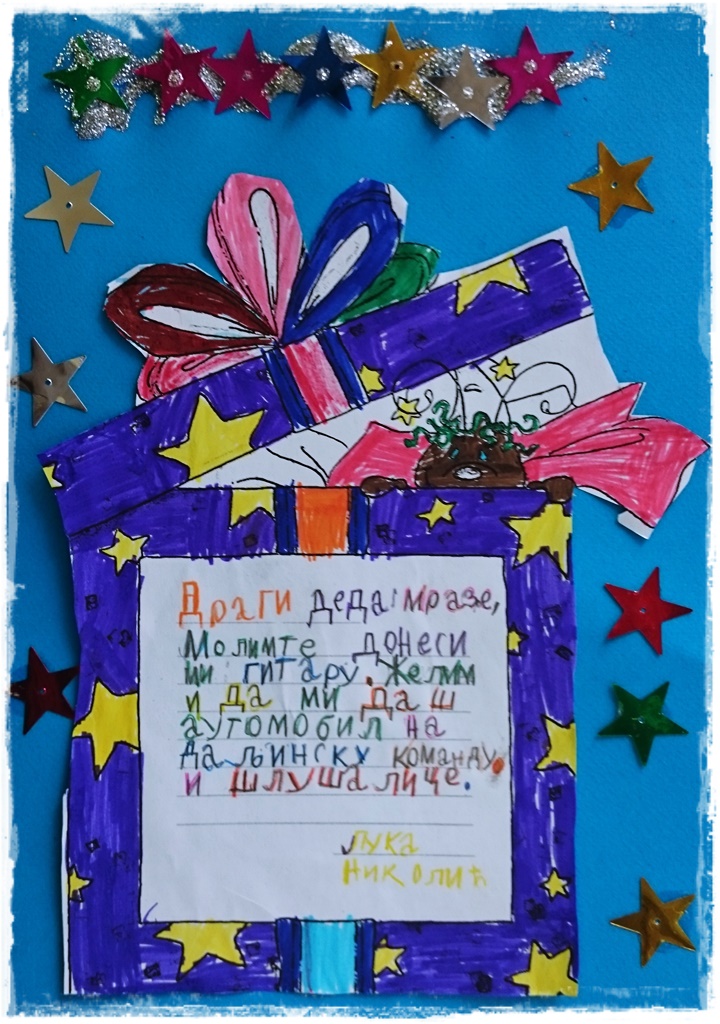 Драги деда мразе,
Молимте донеси
ми гитару. Желим
и да ми даш
аутомобил на
даљинску команду.
и шлушаличе.
Лука
Николић